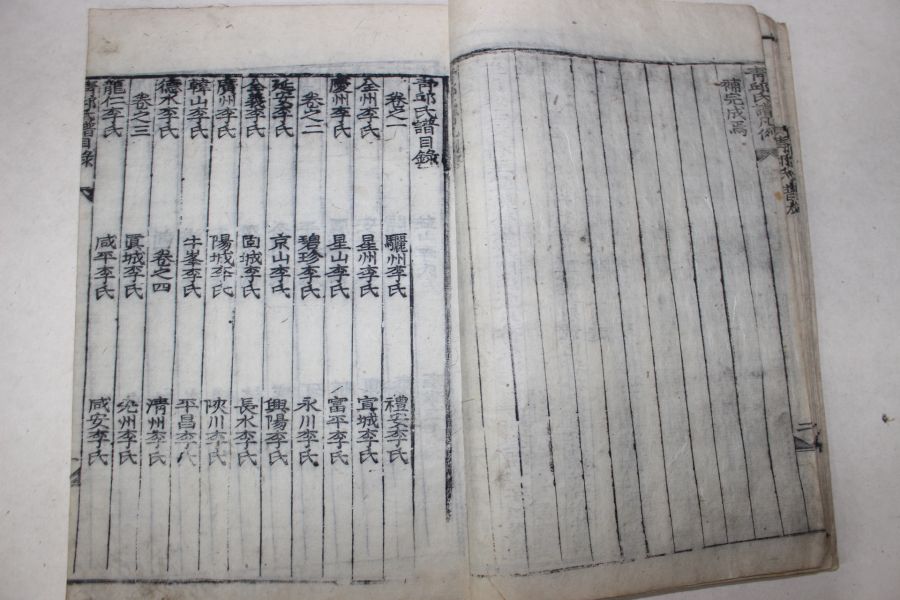 補完成焉
靑邱氏譜目錄
卷之一 驪州李氏 禮安李氏
全州李氏 星州李氏 城李氏
慶州李氏 星山李氏 富平李氏
卷之二 碧珍李氏 永川李氏
延安李氏 京山李氏 興陽李氏
全義李氏 固城李氏 長水李氏
廣州李氏 陽城李氏 陜川李氏
韓山李氏 牛峯李氏 平昌李氏
德水李氏 卷之四 淸州李氏
卷之三 眞城李氏 州李氏
龍仁李氏 咸平李氏 咸安李氏
靑邱氏譜目錄